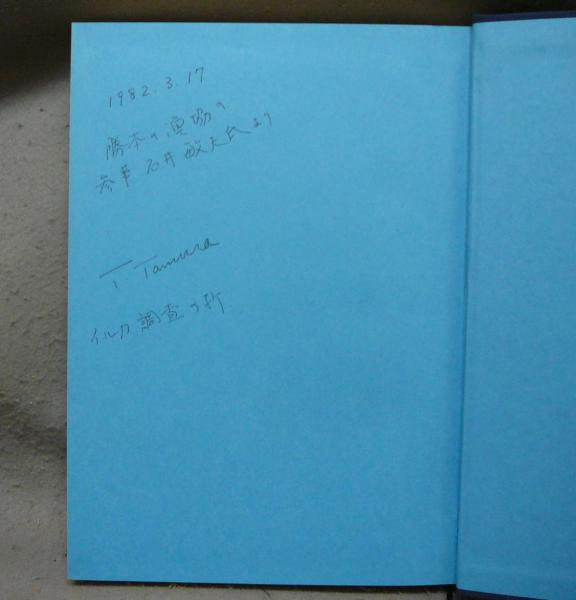 1982.3.17
勝本の漁協の
参事 石井敏夫氏より
T. Tamura
イルカ調査の折